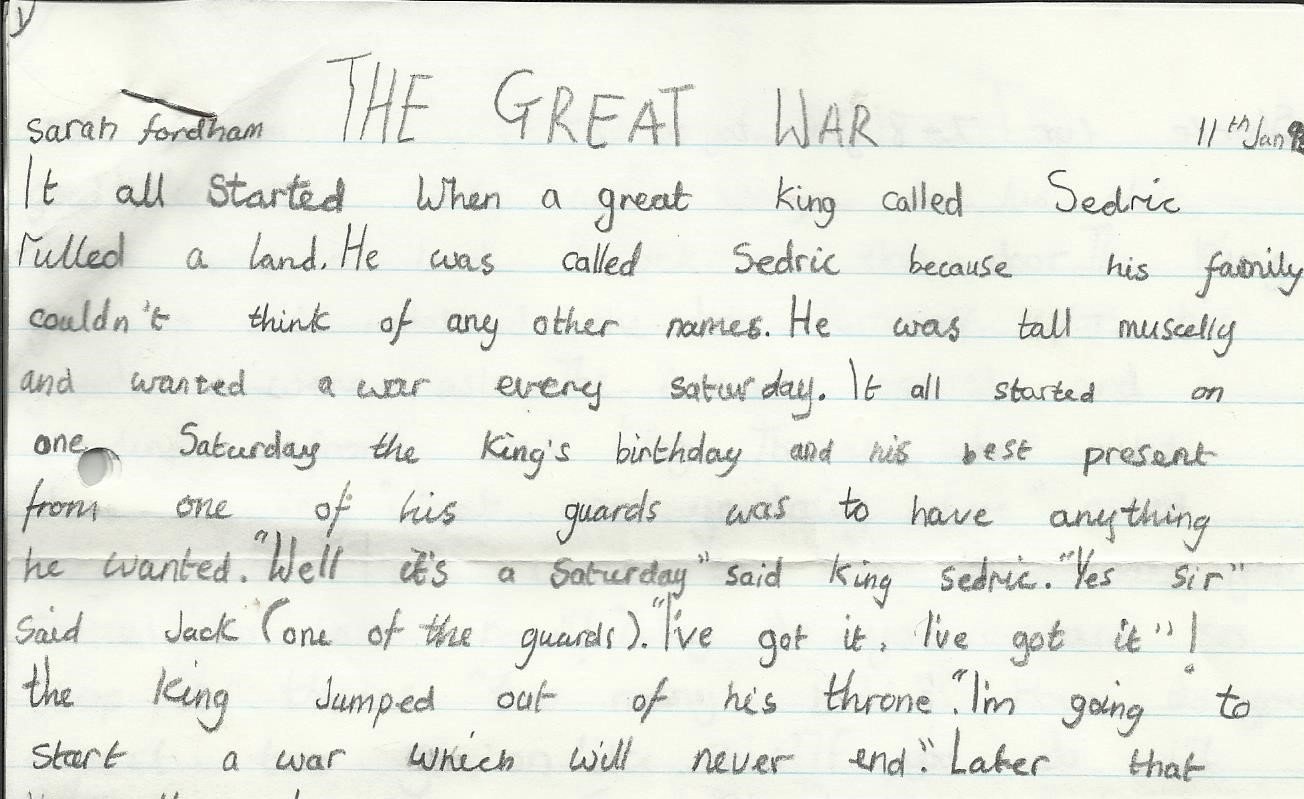 THE GREAT WAR
sarah fordham 11th Jan
It all Started When a great king called Sedric
rulled a land. He was called Sedric because his family
couldn't think of any other names. He was tall muscelly
and wanted a war every saturday. It all started on
one Saturday the King's birthday and his best present
from one of his guards was to have anything
he wanted. "Well it's a Saturday" said king sedric. "Yes sir"
said Jack (one of the guards). "I've got it, I've got it"!
the king Jumped out of his throne". I'm going to
start a war which will never end". Later that